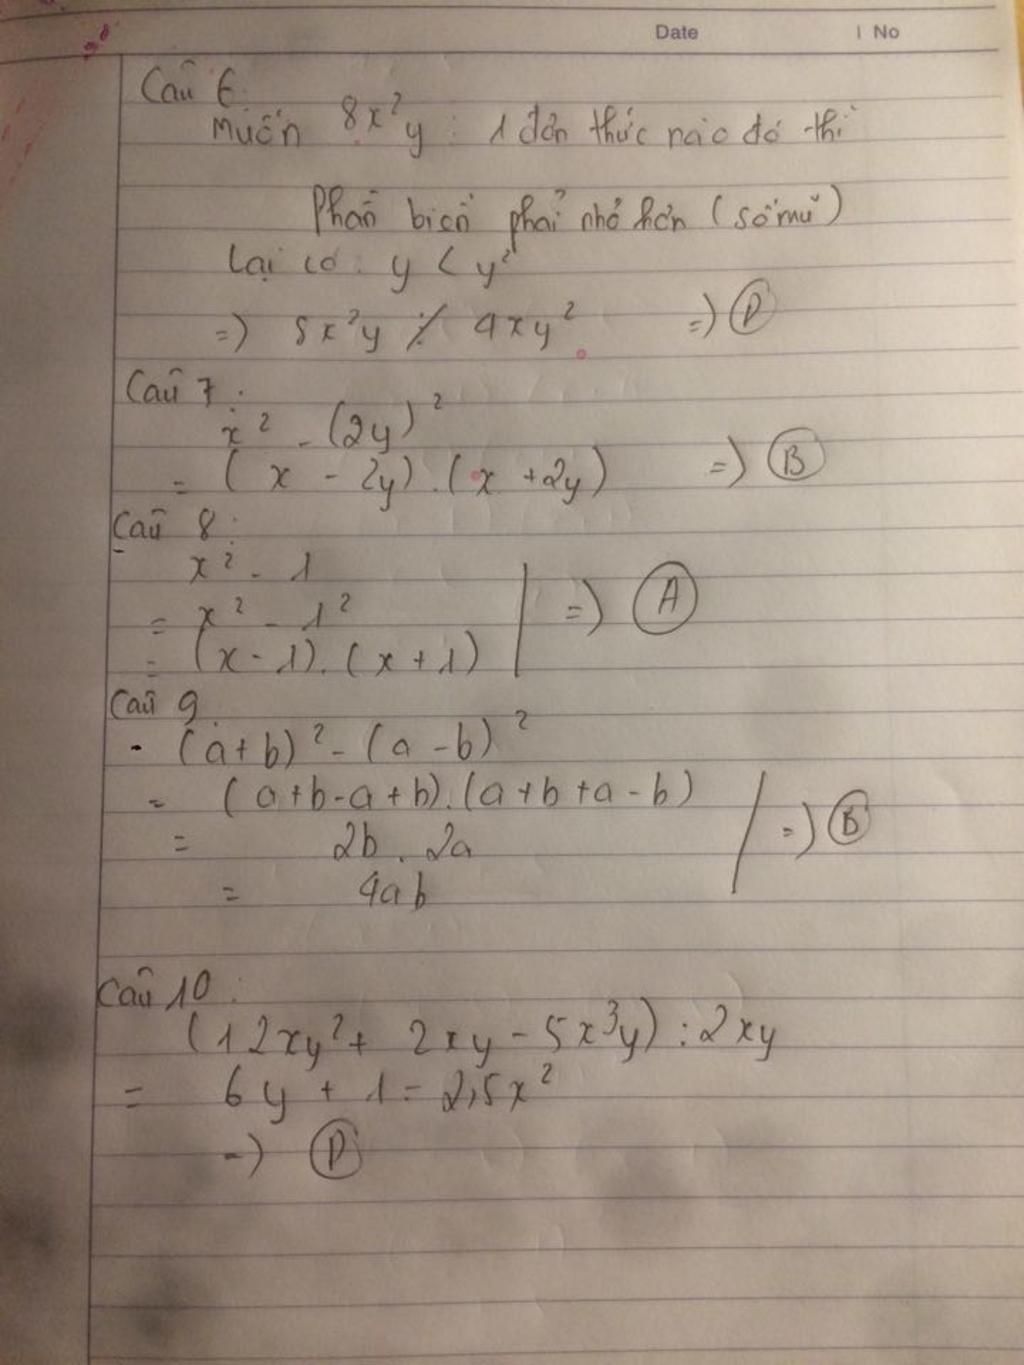 Date
No
Câu 6:
Muốn 8x²y : 1 đơn thức nào đó thì
Phần biến phải nhỏ hơn (số mũ)
Lại có: y < y²
=) 8x²y ⋮̸ 4xy² =) D
Câu 7:
x² - (2y)²
= (x - 2y).(x + 2y) =) B
Câu 8:
x² - 1
= x² - 1²
= (x - 1).(x + 1) =) A
Câu 9
(a+b)² - (a-b)²
= (a+b-a+b).(a+b+a-b)
= 2b . 2a =) B
= 4ab
Câu 10:
(12xy² + 2xy - 5x³y) : 2xy
= 6y + 1 - 2,5x²
=) D